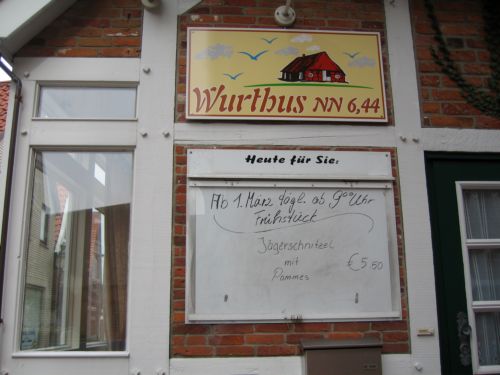 Wurthus NN 6,44
Heute für Sie:
Ab 1. März tägl. ab 9⁰⁰ Uhr
Frühstück
Jägerschnitzel
mit
Pommes
€ 5.50